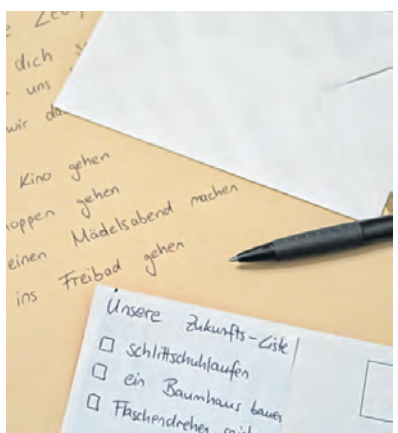 dich
uns
wir
Kino gehen
gehen
einen Mädelsabend machen
ins Freibad gehen
Unsere Zukunfts-Liste
schlittschuhlaufen
ein Baumhaus bauen
Flaschendrehen